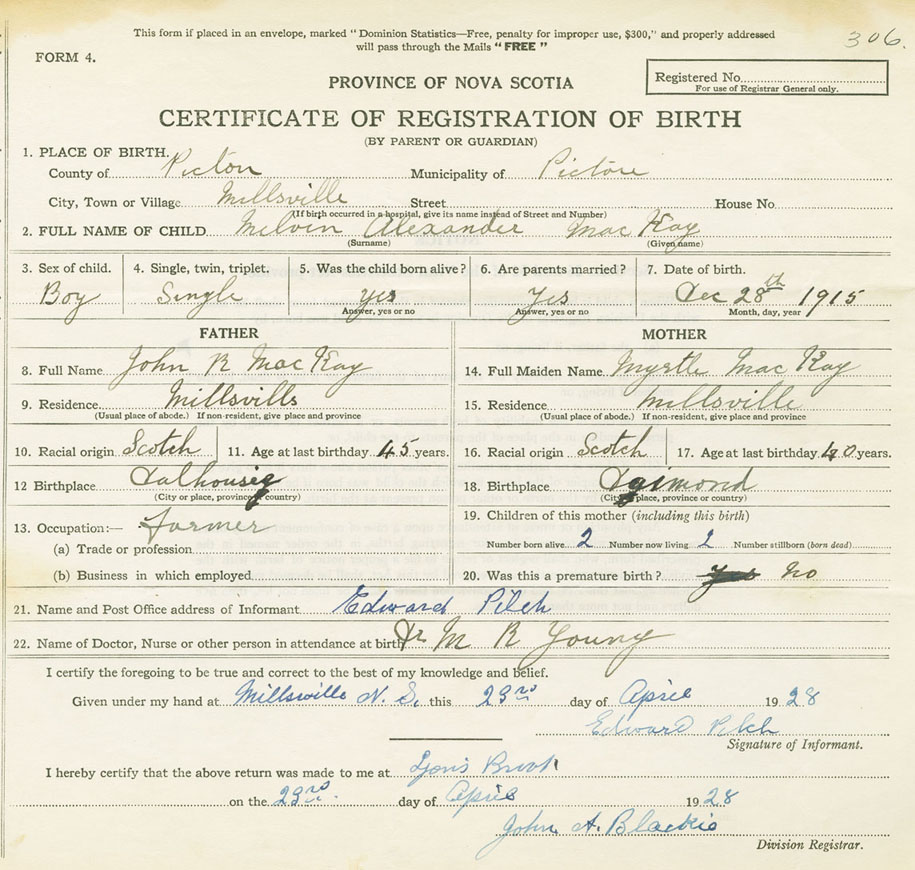 This form if placed in an envelope, marked "Dominion Statistics—Free, penalty for improper use, $300," and properly addressed
will pass through the Mails "FREE"
306.
FORM 4.
PROVINCE OF NOVA SCOTIA
Registered No
For use of Registrar General only.
CERTIFICATE OF REGISTRATION OF BIRTH
(BY PARENT OR GUARDIAN)
1. PLACE OF BIRTH.
County of Picton Municipality of Pictou
City, Town or Village Millsville Street House No
(If birth occurred in a hospital, give its name instead of Street and Number)
2. FULL NAME OF CHILD Melvin Alexander Mac Kay
(Surname) (Given name)
3. Sex of child. 4. Single, twin, triplet. 5. Was the child born alive? 6. Are parents married? 7. Date of birth.
Boy Single yes Yes Dec 28th 1915
Answer, yes or no Answer, yes or no Month, day, year
FATHER MOTHER
8. Full Name John R Mac Kay 14. Full Maiden Name Myrtle Mac Kay
9. Residence Millsvills 15. Residence Millsville
(Usual place of abode.) If non-resident, give place and province (Usual place of abode.) If non-resident, give place and province
10. Racial origin Scotch 11. Age at last birthday 45 years. 16. Racial origin Scotch 17. Age at last birthday 40 years.
12 Birthplace Dalhousie 18. Birthplace
(City or place, province or country) (City or place, province or country)
13. Occupation:— farmer 19. Children of this mother (including this birth)
(a) Trade or profession Number born alive 2 Number now living 2 Number stillborn (born dead)
(b) Business in which employed 20. Was this a premature birth? No
21. Name and Post Office address of Informant Edward Pilch
22. Name of Doctor, Nurse or other person in attendance at birth Dr M R Young
I certify the foregoing to be true and correct to the best of my knowledge and belief.
Given under my hand at Millsville N. S. this 23rd day of April 1928
Edward Pilch
Signature of Informant.
I hereby certify that the above return was made to me at Lyons Brook
on the 23rd day of April 1928
John A. Blackie
Division Registrar.